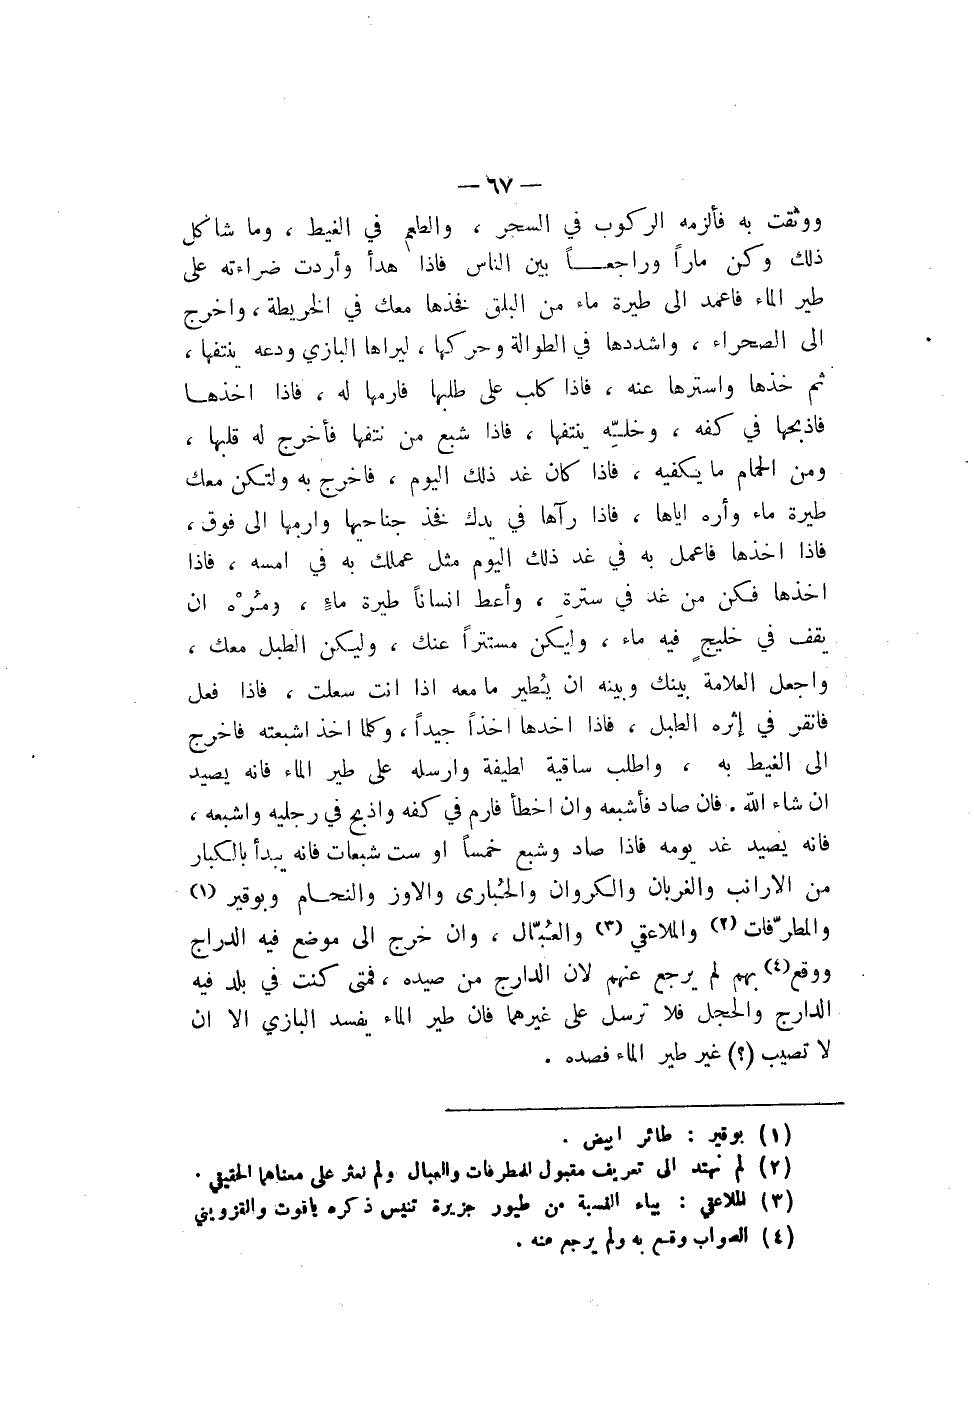 — ٦٧ —
ووثقت به فألزمه الركوب في السجر ، والطعم في الغيط ، وما شاكل
ذلك وكن ماراً وراجعـــاً بين الناس فاذا هدأ وأردت ضراءته على
طير الماء فاعمد الى طيرة ماء من البلق فخذها معك في الخريطة ، واخرج
الى الصحراء ، واشددها في الطوالة وحركها ، ليراها البازي ودعه ينتفها ،
ثم خذها واسترها عنه ، فاذا كلب على طلبها فارمها له ، فاذا اخذهـا
فاذبحها في كفه ، وخليّه ينتفها ، فاذا شبع من نتفها فأخرج له قلبها ،
ومن الحمام ما يكفيه ، فاذا كان غد ذلك اليوم ، فاخرج به ولتكن معك
طيرة ماء وأره اياها ، فاذا رآها في يدك فخذ جناحيها وارمها الى فوق ،
فاذا اخذها فاعمل به في غد ذلك اليوم مثل عملك به في امسه ، فاذا
اخذها فكن من غد في سترةِ ، وأعط انساناً طيرة ماءٍ ، ومُرْه ان
يقف في خليجٍ فيه ماء ، وليكن مستتراً عنك ، وليكن الطبل معك ،
واجعل العلامة بينك وبينه ان يُطير ما معه اذا انت سعلت ، فاذا فعل
فانقر في إثره الطبل ، فاذا اخدها اخذاً جيداً ، وكلما اخذ اشبعته فاخرج
الى الغيط به ، واطلب ساقية لطيفة وارسله على طير الماء فانه يصيد
ان شاء الله . فان صاد فأشبعه وان اخطأ فارم في كفه واذبح في رجليه واشبعه ،
فانه يصيد غد يومه فاذا صاد وشبع خمساً او ست شبعات فانه يبدأ بالكبار
من الارانب والغربان والكروان والحُبارى والاوز والنحـام وبوقير (١)
والمطرّفات (٢) والملاعقي (٣) والعُبّال ، وان خرج الى موضع فيه الدراج
ووقع (٤) بهم لم يرجع عنهم لان الدارج من صيده ، فمتى كنت في بلد فيه
الدارج والحجل فلا ترسل على غيرهما فان طير الماء يفسد البازي الا ان
لا تصيب (؟) غير طير الماء فصده .
(١) بوقير : طائر ابيض .
(٢) لم نهتد الى تعريف مقبول للمطرفات والعبال ولم نعثر على معناهما الحقيقي .
(٣) الملاعقي : بياء النسبة من طيور جزيرة تنيس ذكره ياقوت والقزويني
(٤) الصواب وقع به ولم يرجع عنه .